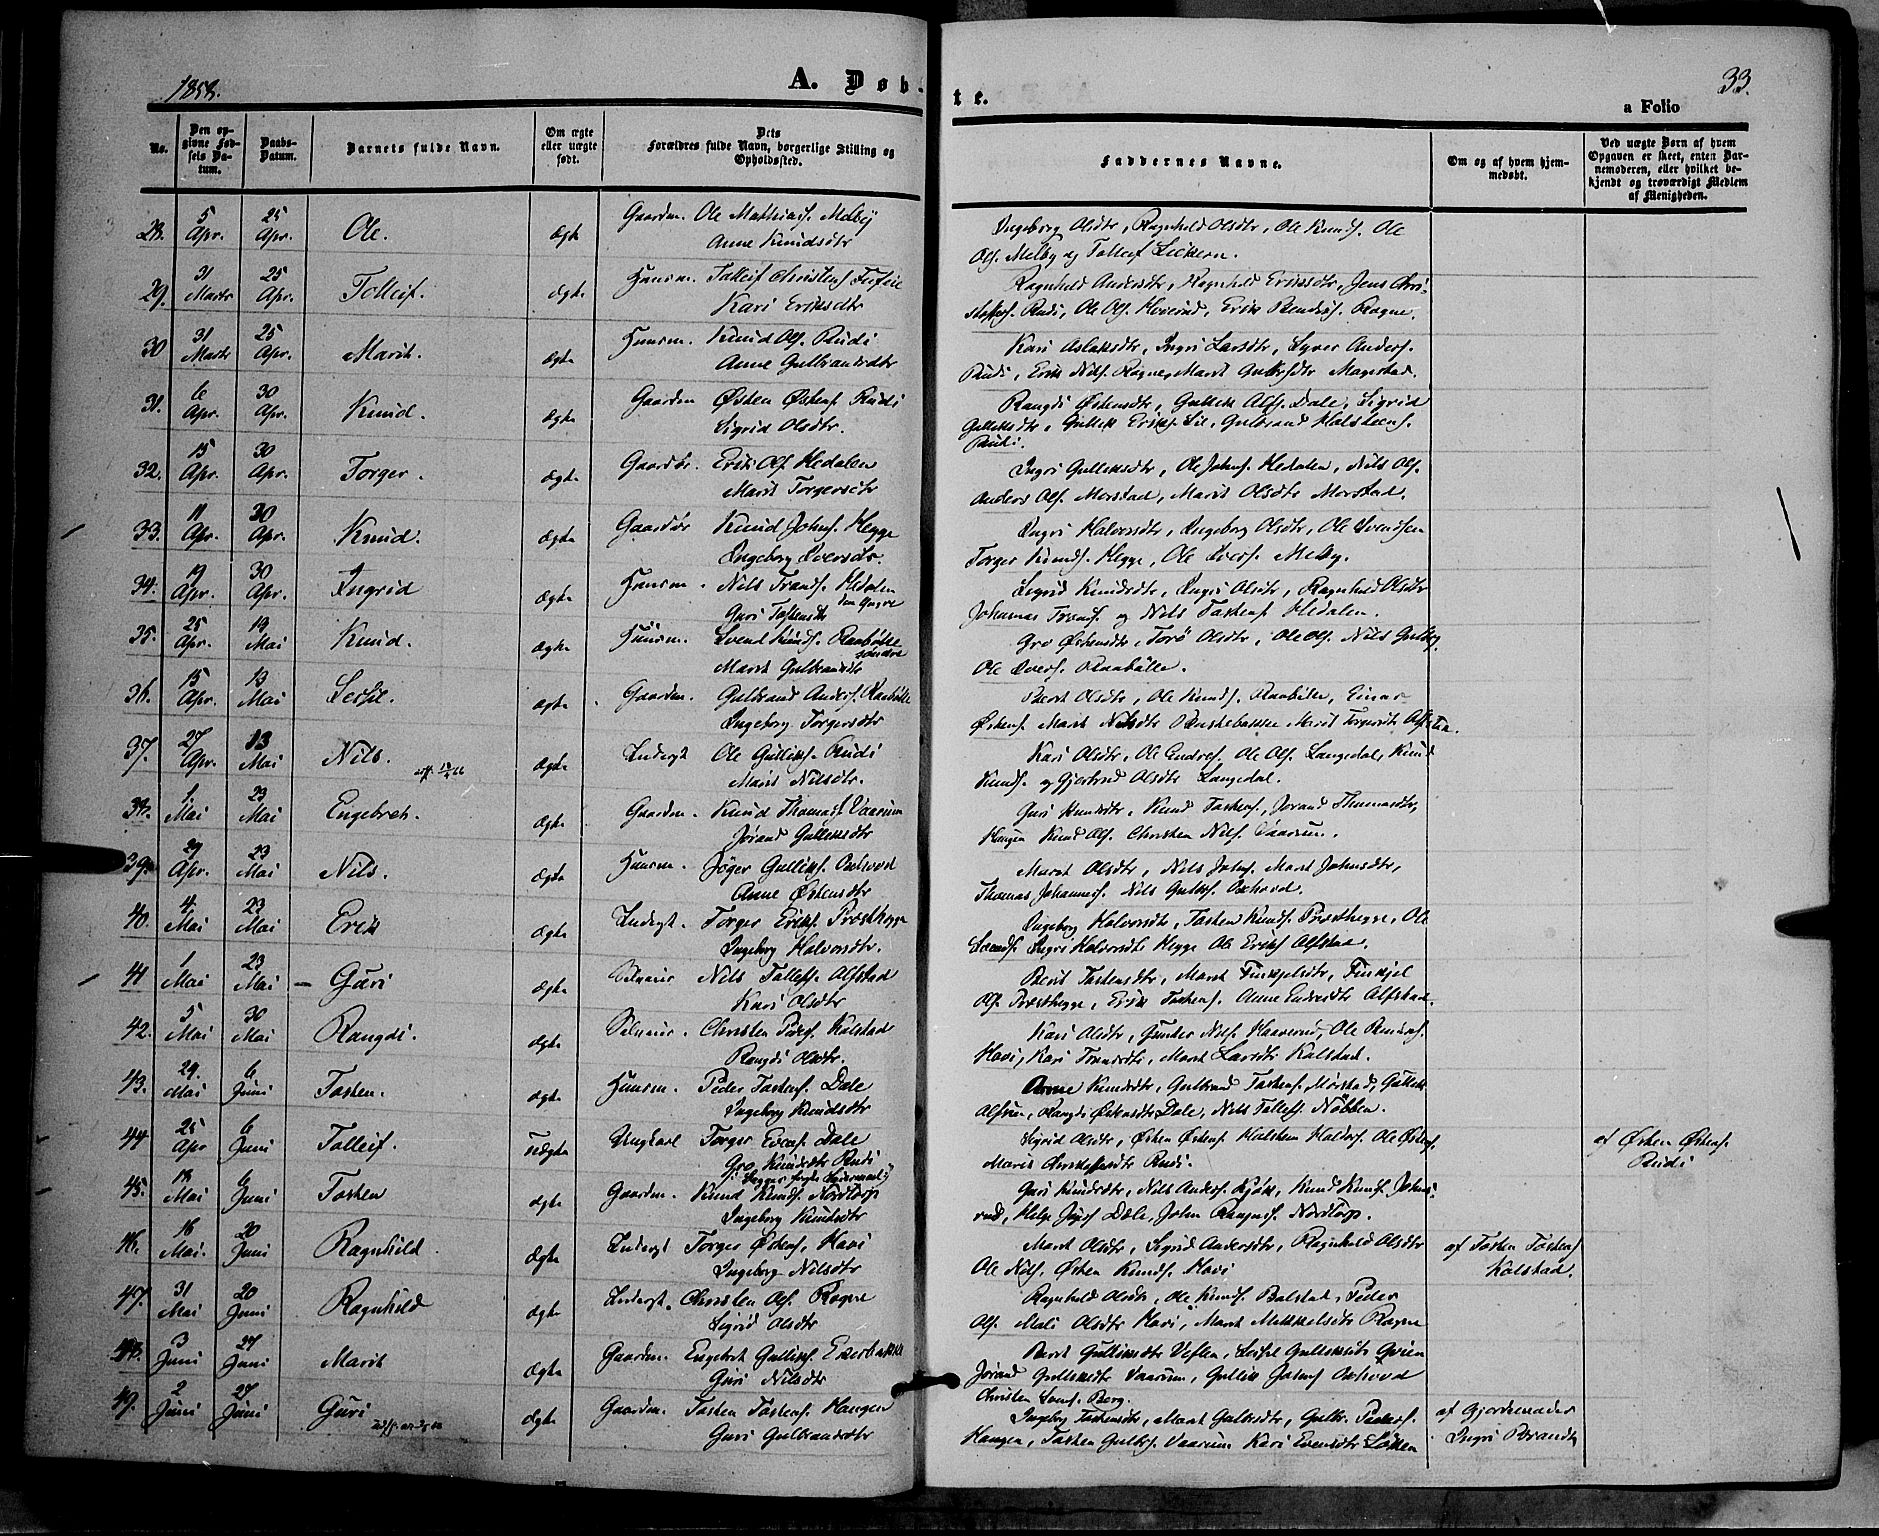 1858.
A. Døb-
te.
33.
a Folio
No.
Den op-
givne Fød-
sels Da-
tum.
Daabs-
Datum.
Barnets fulde Navn.
Om ægte
eller uægte
født.
Dets
Forældres fulde Navn, borgerlige Stilling og
Opholdssted.
Faddernes Navne.
Om og af hvem hjem-
medøbt.
Ved uægte Børn af hvem
Opgaven er skeet, enten Bar-
nemoderen, eller hvilket be-
kjendt og troværdigt Medlem
af Menigheden.
28. 5 Apr. 25 Apr. Ole. Ægte Gaardm. Ole Mathias. Melby
Anne Knudsdtr
Ingeborg Olsdtr, Ragnhild Olsdtr, Ole Knuds. Ole
Ols. Melby og Tolleif
29. 31 Marts 25 Apr. Tolleif. Ægte Huusm. Tolleif Christens
Kari Eriksdtr
Ragnhild Andersdtr, Ragnhild Eriksdtr, Jens Chri-
Rudi, Ole Ols. Erik Rogne.
30 31 Marts 25 Apr. Marit. Ægte Huusm. Knud Ols. Rudi
Anne Gulbrandsdtr
Kari Aslaksdtr, Ingri Larsdtr, Syver Anders.
Rudi, Erik Nils. Rogne, Marit
31. 6 Apr. 30 Apr. Knud. Ægte Gaardm Østen Østens. Rudi
Sigrid Olsdtr.
Rangdi Østensdtr, Gullik Ols. Dale, Sigrid
Gulliksdtr, Gullik Eriks. Lie, Gulbrand Halsteens.
Rudi.
32. 15 Apr. 30 Apr. Torger. Ægte Gaardbr. Erik Ols. Hedalen
Marit Torgersdtr
Ingri Gulliksdtr, Ole Johns. Hedalen, Nils Ols.
Anders Ols. Morstad, Marit Olsdtr Morstad.
33. 11 Apr. 30 Apr. Knud. Ægte Gaardbr Knud Johns. Hegge
Ingeborg Iversdtr.
Ingri Halvorsdtr, Ingeborg Olsdtr, Ole Svendsen
Torger Knuds. Hegge, Ole Ivers. Melby.
34. 19 Apr. 30 Apr. Ingrid Ægte Huusm. Nils Tronds. Hedalen
Guri Tostensdtr
Sigrid Knudsdtr, Ingri Olsdtr, Ragnhild Olsdtr
Johannes Tronds. og Nils Tostens. Hedalen.
35. 25 Apr. 13 Mai Knud. Ægte Huusm. Svend Knuds. Raabølle
søndre
Marit Gulbrandsdtr
Gro Østensdtr, Torø Olsdtr, Ole Ols. Nils
Ole Ivers. Raabølle.
36. 15 Apr. 13 Mai Ægte Gaardm. Gulbrand Anders. Raabølle
Ingeborg Torgersdtr
Berit Olsdtr, Ole Knuds. Raabølle, Einar
Østens. Marit Nilsdtr Marit Torgersdtr Alfstad.
37. 27 Apr. 13 Mai Nils. Ægte Inderst Ole Gulliks. Rudi
Marit Nilsdtr.
Kari Olsdtr, Ole Endres. Ole Ols. Langedal, Knud
Knuds. og Gjertrud Olsdtr Langedal.
38. 1 Mai 23 Mai Engebret. Ægte Gaardm. Knud Thomas. Vaarum
Jørand Gulliksdtr
Guri Knudsdtr, Knud Tostens., Jorand Thomasdtr,
Haugen Knud Ols. Christen Nils. Vaarum.
39. 29 Apr. 23 Mai Nils. Ægte Huusm. Jøger Gulliks. Oxhovd
Anne Østensdtr
Marit Olsdtr, Nils Johns. Marit Johnsdtr,
Thomas Johannes. Nils Gulliks. Oxhovd.
40. 4 Mai 23 Mai Erik Ægte Inderst. Torger Eriks. Præsthegge
Ingeborg Halvorsdtr.
Ingeborg Halvorsdtr, Tosten Knuds. Præsthegge, Ole
Svends. Ingri Halvorsdtr Hegge Ole Eriks. Alfstad.
41 1 Mai 23 Mai Guri Ægte Selveier Nils Tollefs. Alfstad
Kari Olsdtr
Berit Tostensdtr, Marit Finkjelsdtr, Finkjel
Ols. Præsthegge, Erik Tostens. Anne Endresdtr Alfstad.
42. 5 Mai 30 Mai Rangdi. Ægte Selveier. Christen Peders. Kolstad
Rangdi Olsdtr.
Kari Olsdtr, Gunder Nils. Haavrud, Ole
Hovi, Kari Trondsdtr, Marit Larsdtr Kolstad.
43. 29. Mai 6 Juni Tosten. Ægte Huusm. Peder Tostens. Dale
Ingeborg Knudsdtr
Anne Knudsdtr, Gulbrand Tostens. Mørstad, Gullik
Rangdi Østensdtr Dale, Nils Tollefs. Nøbben.
44 25 Apr 6 Juni Tolleif. Uægte Ungkarl Torger Evens. Dale
Gro Knudsdtr Rudi
Sigrid Olsdtr, Østen Østens. Halsten Haldors. Ole Østens.
Marit Christophersdtr Rudi.
af Østen Østens.
Rudi
45. 18 Mai 6 Juni Tosten Ægte Gaardm. Knud Knuds. Nordtorp
Ingeborg Knudsdtr
Guri Knudsdtr, Nils Anders. Kjøk, Knud Knuds. Johns-
rud, Helge Dale, John Nordtorp.
46. 16 Mai. 20 Juni Ragnhild. Ægte Inderst Torger Østens. Hovi
Ingeborg Nilsdtr
Marit Olsdtr, Sigrid Andersdtr, Ragnhild Olsdtr
Ole Nils. Østen Knuds. Hovi
af Tosten Tostens.
Kolstad.
47. 31 Mai 20 Juni Ragnhild Ægte Inderst. Christen Ols. Rogne
Sigrid Olsdtr
Ragnhild Olsdtr, Ole Knuds. Bolstad, Peder
Ols. Mali Olsdtr Hovi, Marit Mikkelsdtr Rogne
48. 3 Juni 27 Juni Marit Ægte Gaardm. Engebret Gulliks.
Guri Nilsdtr
Berit Gulliksdtr Veflen, Gulliksdtr
Jørand Gulliksdtr Vaarum, Gullik Oxhovd
Christen Berg.
49. 2 Juni 27 Juni Guri Ægte Gaardm. Tosten Tostens. Haugen
Guri Gulbrandsdtr
Ingeborg Tostensdtr, Marit Gulbrsdtr, Gulbr. Peders.
Haugen, Tosten Gulbrs. Vaarum Kari Evensdtr Løkken
af Gjordemoder
Ingri Brandt